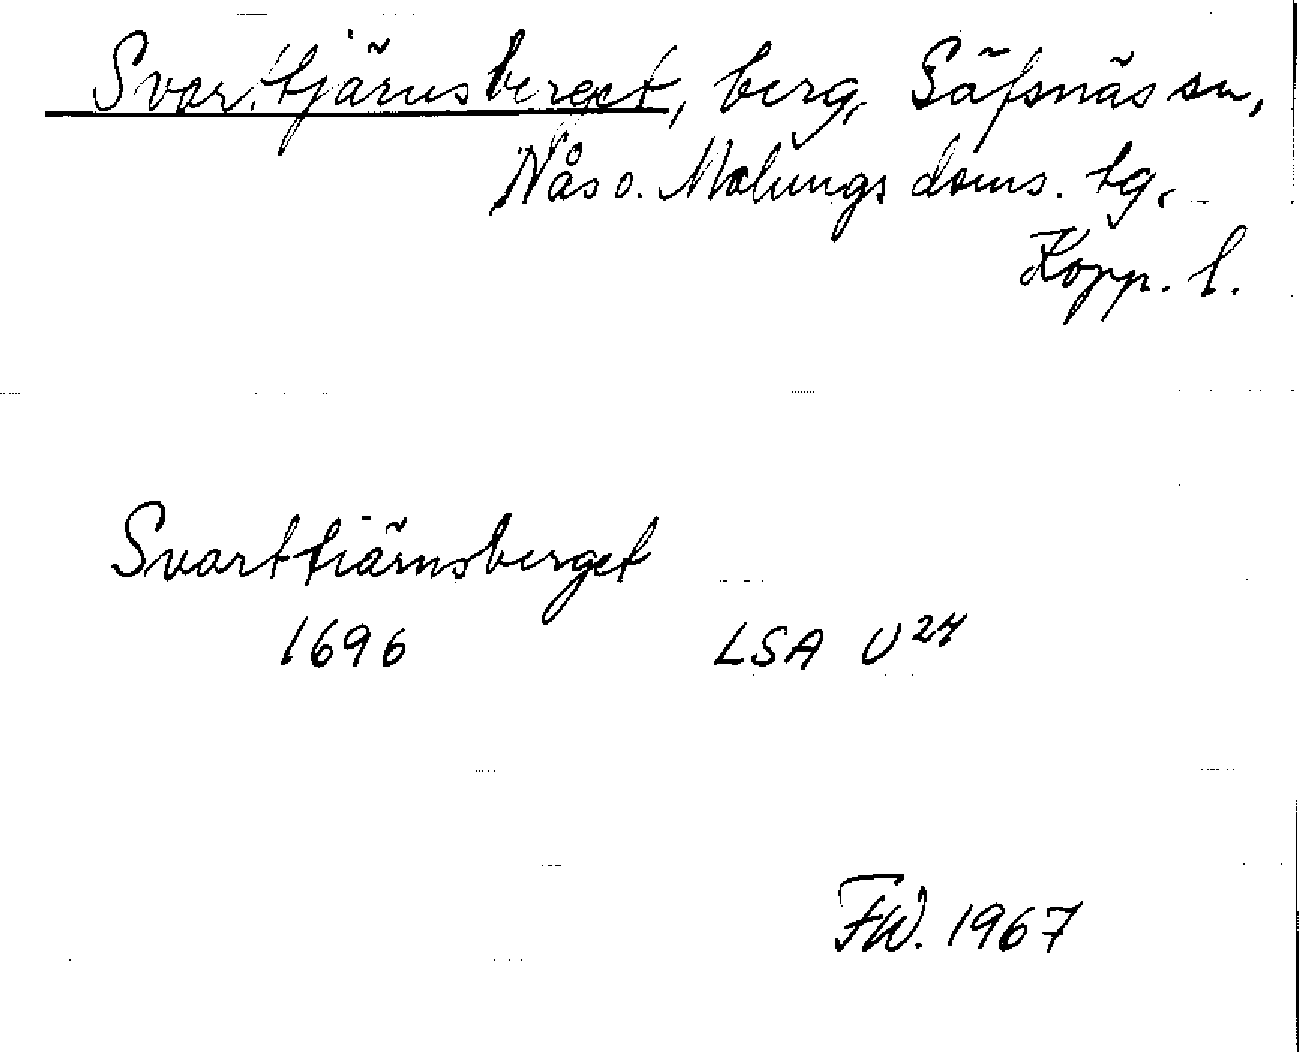 Svarttjärnsberget, berg, Säfsnäs sn,
Nås o. Malungs doms. tg.
Kopp. l.
Svarttiärnsberget
1696 LSA U 24
FW. 1967